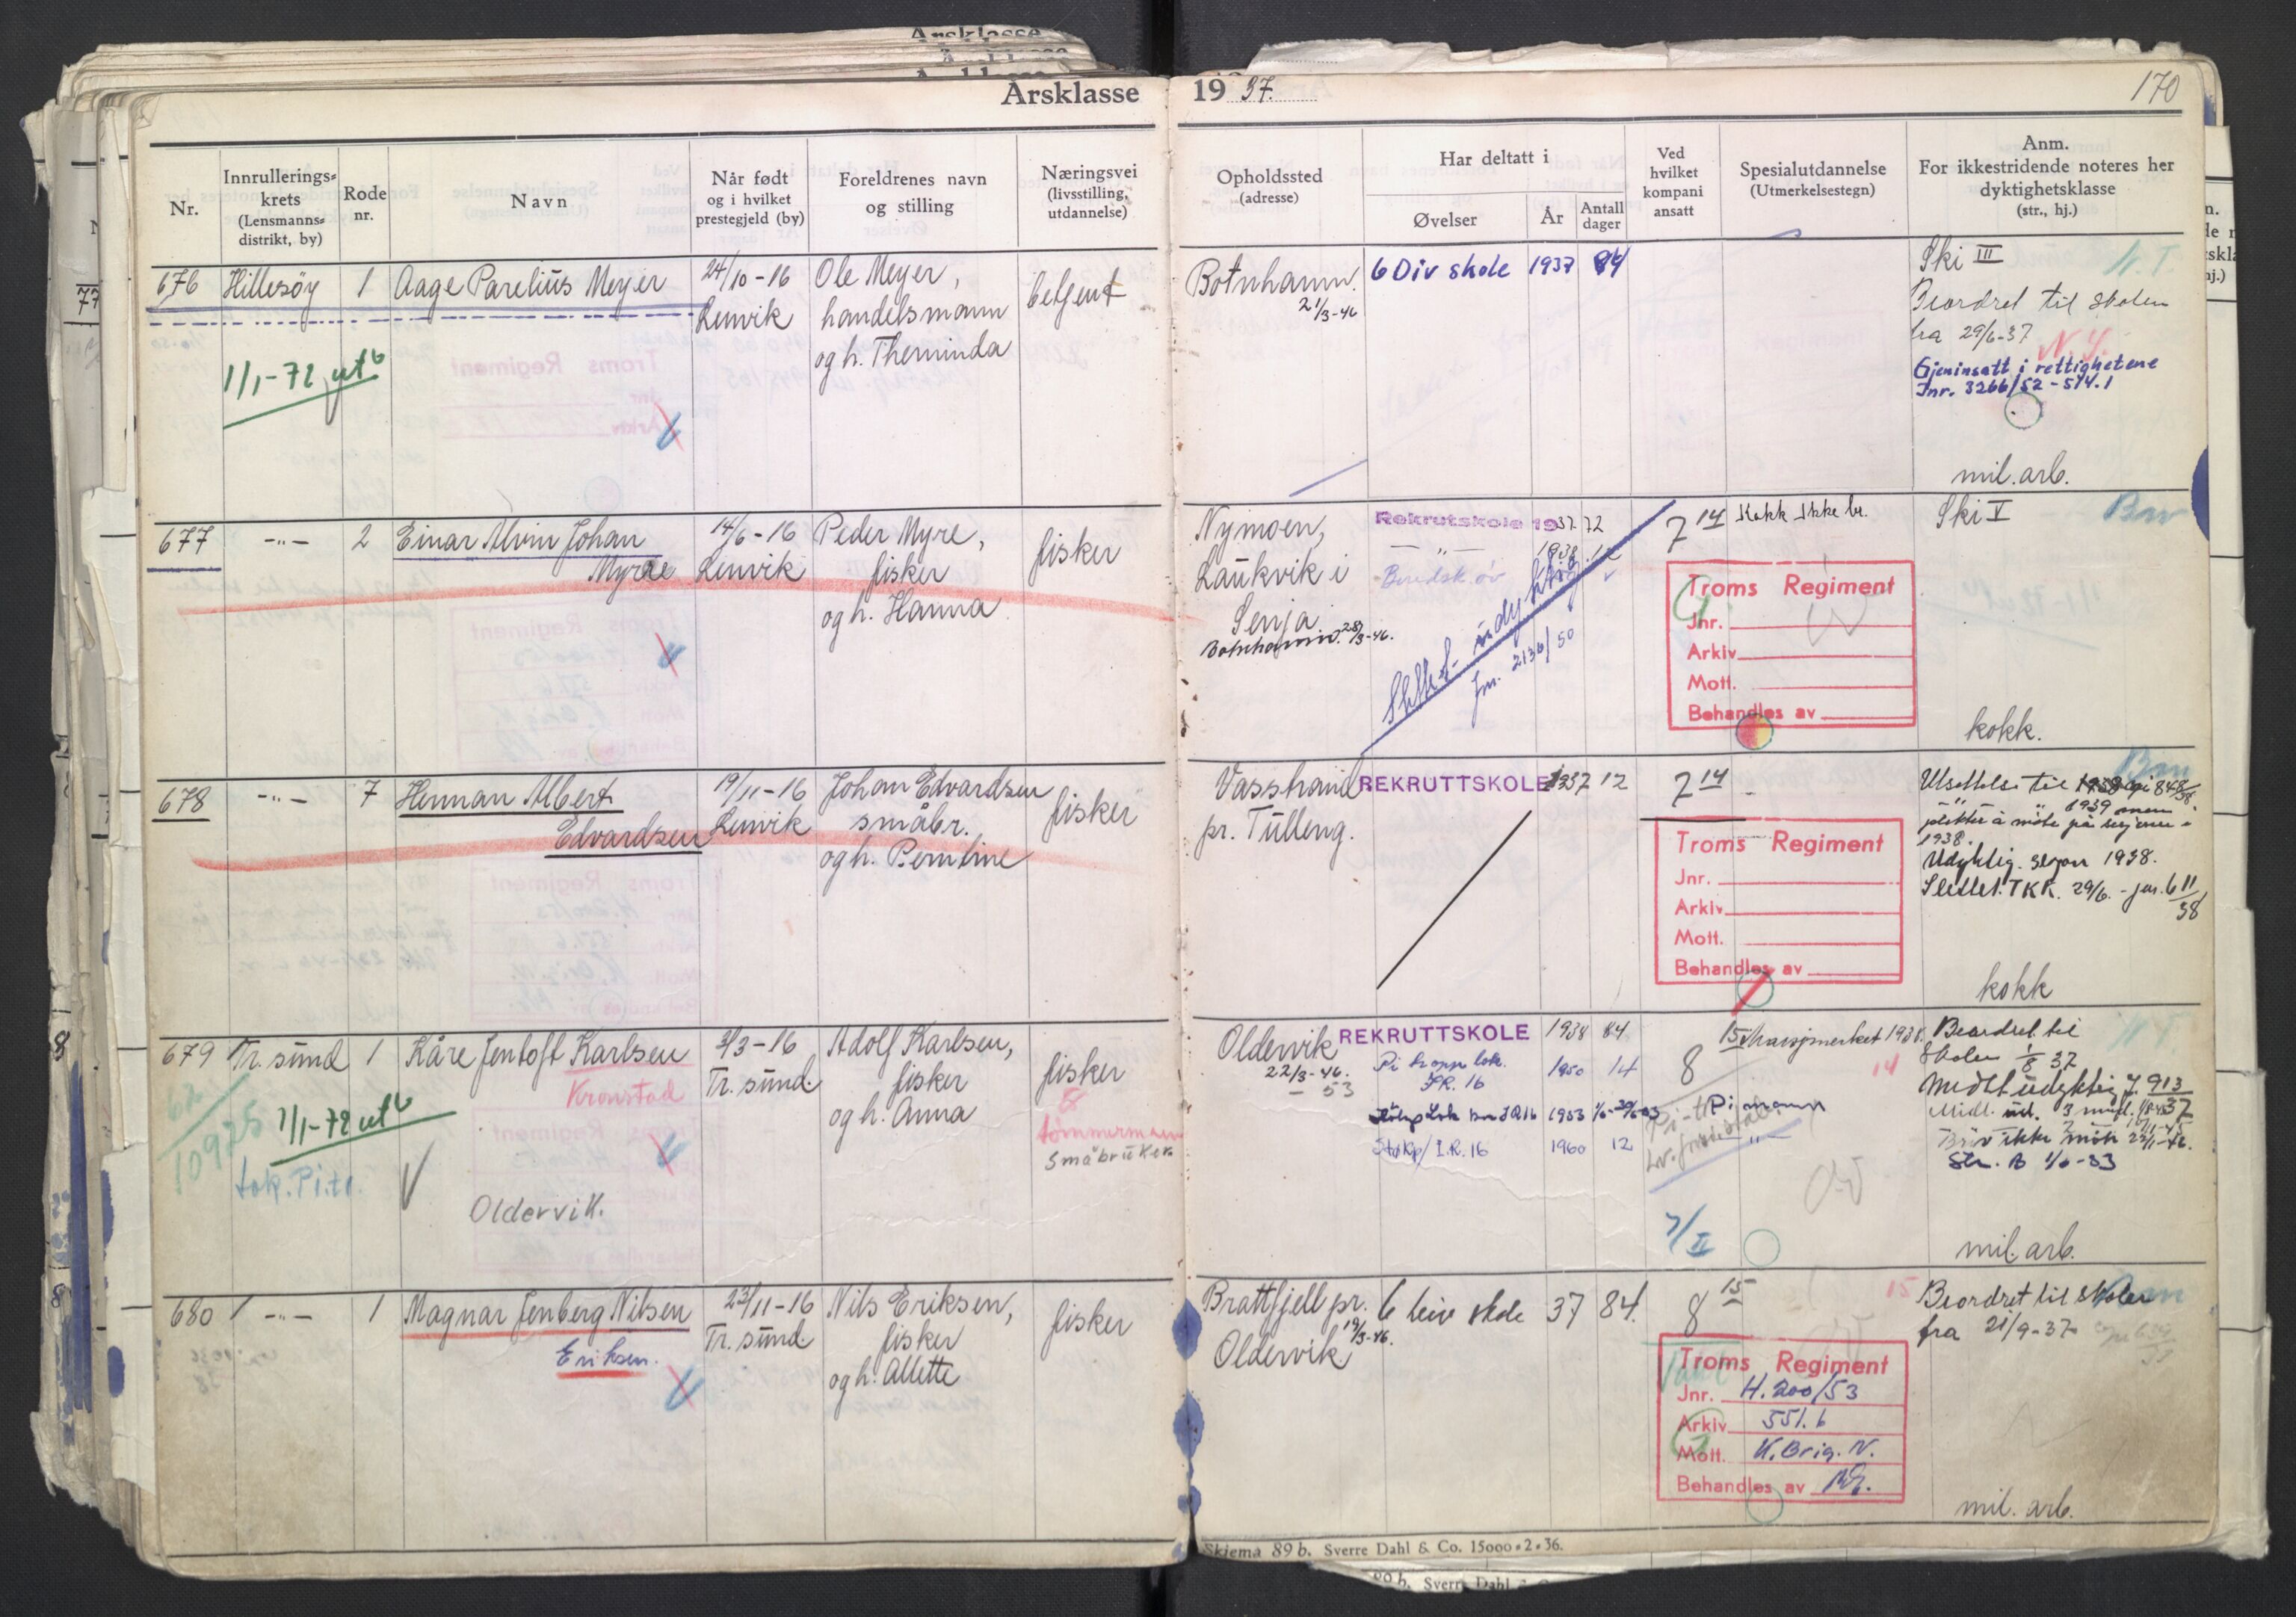 Årsklasse 1937.
170
Nr.
Innrullerings=
krets
(Lensmanns=
distrikt, by)
Rode
nr.
Navn
Når født
og i hvilket
prestegjeld (by)
Foreldrenes navn
og stilling
Næringsvei
(livsstilling,
utdannelse)
Opholdssted
(adresse)
Har deltatt i
Øvelser
År
Antall
dager
Ved
hvilket
kompani
ansatt
Spesialutdannelse
(Utmerkelsestegn)
Anm.
For ikkestridende noteres her
dyktighetsklasse
(str., hj.)
676 Hillesöy 1 Aage Parelius Meyer
24/10-16
Lenvik
Ole Meyer,
handelsmann
og h. Theminda
betjent
1/1-72 ut
Botnhamn.
21/3-46
6 Div skole 1937 84
Ski III
Beordret til skolen
fra 29/6-37
N.T.
Gjeninsatt i rettighetene
Jnr. 3266/52-514.1
mil. arb.
677 -"- 2 Einar Alvin Johan
Myre
14/6-16
Lenvik
Peder Myre,
fisker
og h. Hanna
fisker
Nymoen,
Laukvik i
Senja
Botnhamn. 28/3-46.
Rekrutskole 1937 72
-"- 1938 12
Slettet udyktig
jnr. 2136/50
7 14
Kokk Ikke br.
Troms Regiment
Jnr.
Arkiv
Mott.
Behandles av
Ski V
kokk.
678 -"- 7 Herman Albert
Edvardsen
19/11-16
Lenvik
Johan Edvardsen
småbr.
og h. Perntine
fisker
Vasshaud
pr. Tulleng.
REKRUTTSKOLE 1937 12
7 14
Troms Regiment
Jnr.
Arkiv
Mott.
Behandles av
Utsettelse til
1939 men
plikter å möte på sesjonen i
1938.
Udyktig. sesjon 1938.
Slettet. TKR. 29/6. - jnr. 611/38
kokk
679 Tr. sund 1 Kåre Jentoft Karlsen
Kronstad
3/3-16
Tr. sund.
Adolf Karlsen,
fisker
og h. Anna
fisker
8
tømmermann
Småbruker
62
10975
1/1-72 ut
Oldervik.
Oldervik
22/3-46.
- 53
REKRUTTSKOLE 1938 84
Pi tropp lok.
I.R. 16
1950 14
1953
Stokp/I.R. 16 1960 12
8
15
14
7/II
Beordret til
skolen 1/8 37
Midlt udyktig J. 913/37
Str. B 1/6-53
mil. arb.
680 -"- 1 Magnar Jenberg Nilsen
Eriksen.
23/11-16
Tr. sund.
Nils Eriksen,
fisker
og h. Allette
fisker
Brattfjell pr.
19/3-46.
Oldervik
6 Div skole 37 84.
8 15
15
Troms Regiment
Jnr. H. 200/53
Arkiv 551.6
Mott. K. Brig. N.
Behandles av
Beordret til skolen
fra 21/9-37
mil. arb.
Skjema 89 b. Sverre Dahl & Co. 15000*2*36.